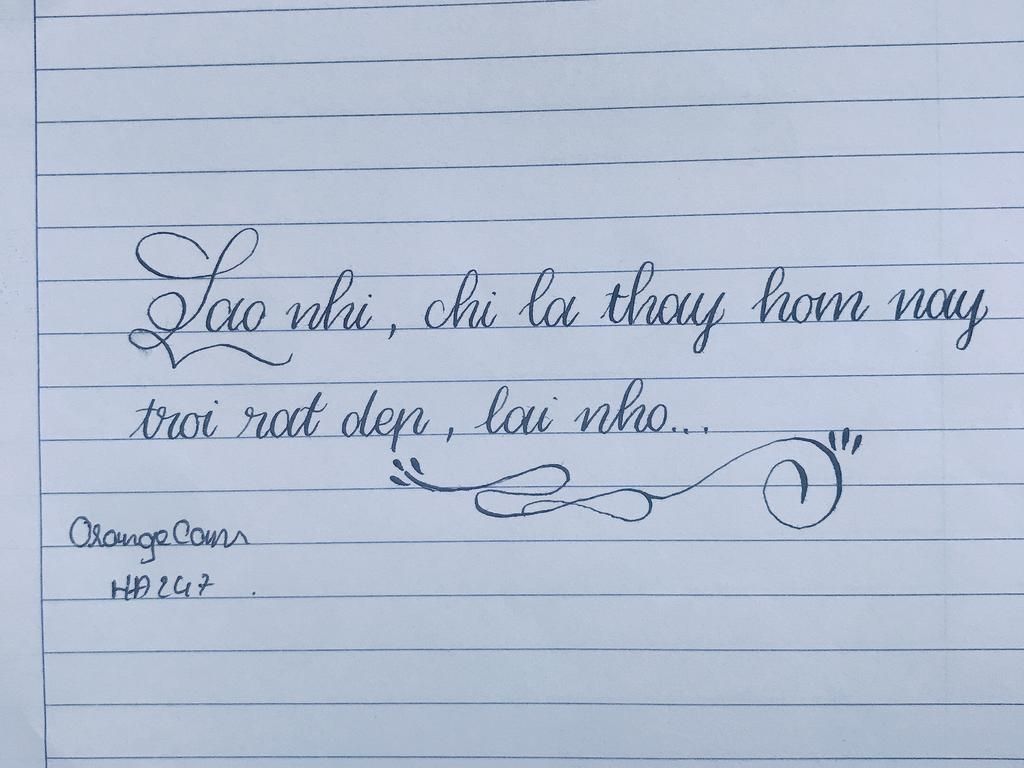 Sao nhi, chi la thay hom nay
troi rat dep, lai nho...
OrangeCam
HA247.